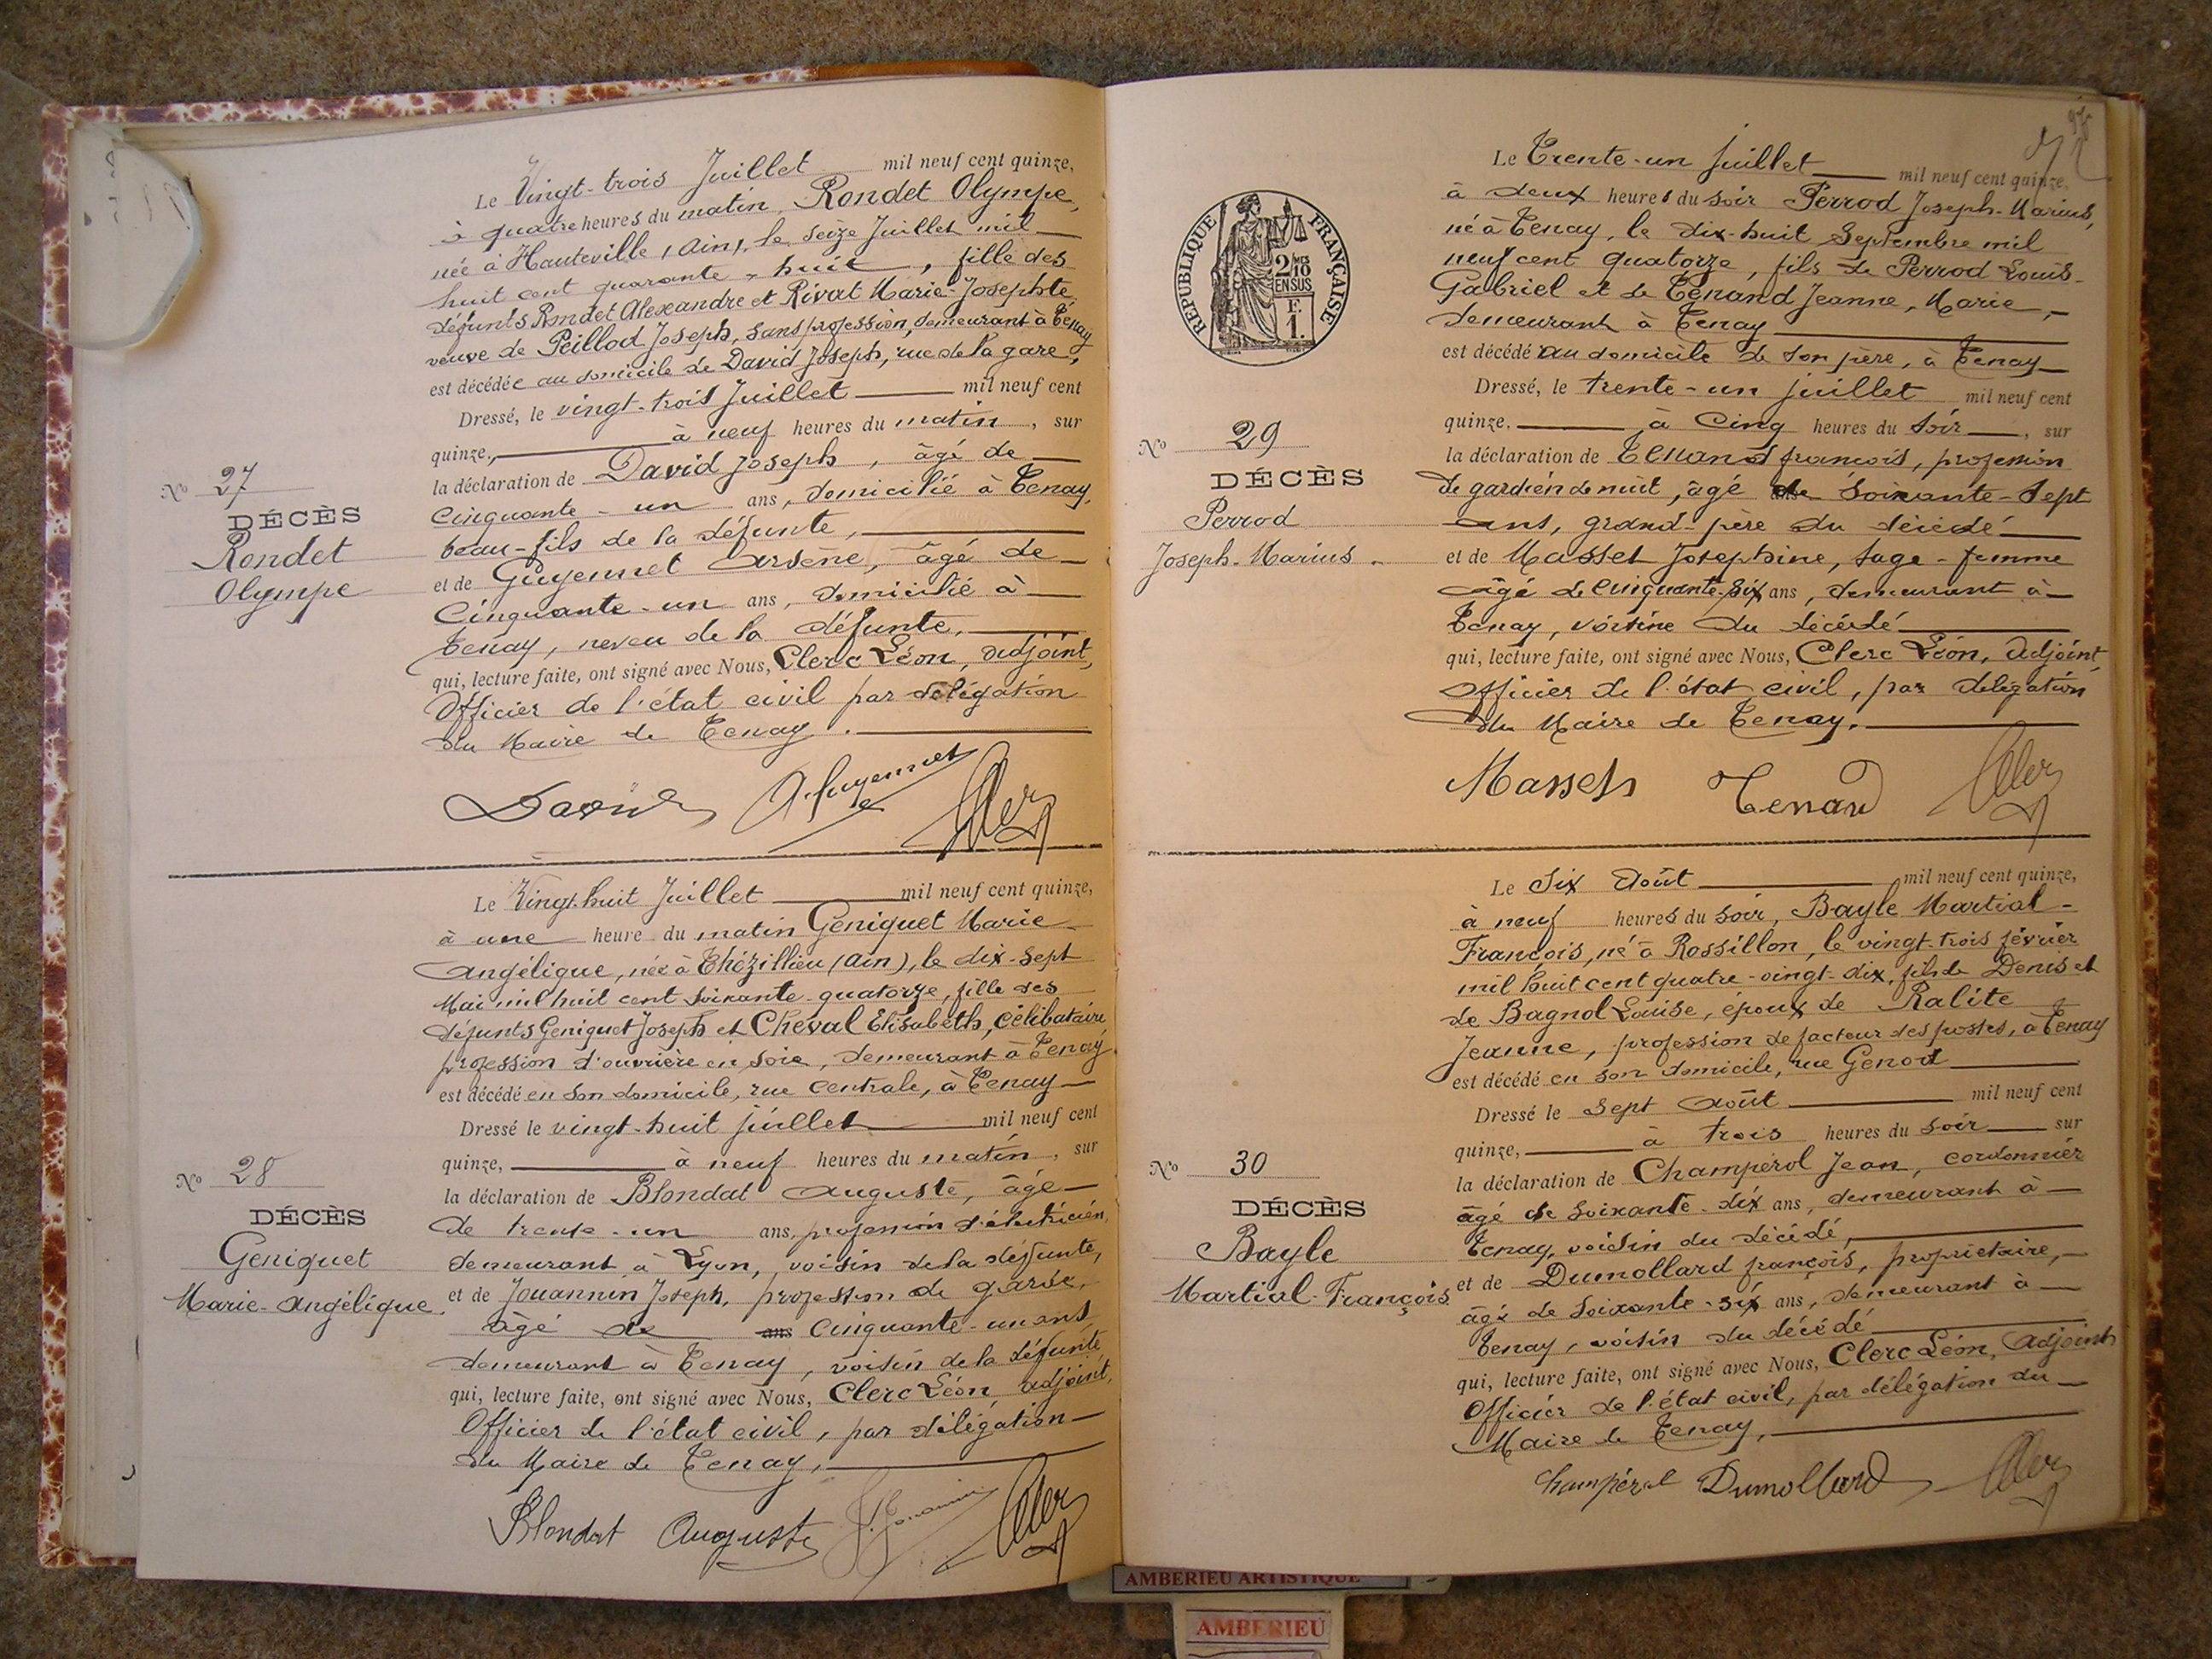 Le Vingt-trois Juillet mil neuf cent quinze,
à quatre heures du matin, Rondet Olympe,
née à Hauteville (Ain), le seize Juillet mil
huit cent quarante-huit, fille des
défunts Rondet Alexandre et Rivat Marie-Josephte
veuve de Peillod Joseph, sans profession, demeurant à Tenay
est décédée au domicile de David Joseph, rue de la gare,
Dressé, le vingt-trois Juillet mil neuf cent
quinze, à neuf heures du matin, sur
la déclaration de David Joseph, âgé de
cinquante-un ans, domicilié à Tenay,
beau-fils de la défunte,
et de Guyennet Arsène, âgé de
Cinquante-un ans, domicilié à
Tenay, neveu de la défunte,
qui, lecture faite, ont signé avec Nous, Clerc Léon, adjoint,
Officier de l'état civil par délégation
du Maire de Tenay.
No 27
DÉCÈS
Rondet
Olympe
David A. Guyennet Clerc
Le Vingt-huit Juillet mil neuf cent quinze,
à une heure du matin Geniquet Marie
Angélique, née à Thézillieu (Ain), le dix-sept
Mai mil huit cent soixante-quatorze, fille des
défunts Geniquet Joseph et Cheval Elisabeth, célibataire
profession d'ouvrière en soie, demeurant à Tenay
est décédé en son domicile, rue centrale, à Tenay
Dressé le vingt-huit juillet mil neuf cent
quinze, à neuf heures du matin, sur
la déclaration de Blondat Auguste, âgé
de trente-un ans, profession d'électricien,
demeurant à Lyon, voisin de la défunte,
et de Jouannin Joseph, profession de garde,
âgé de ans cinquante-un ans,
demeurant à Tenay, voisin de la défunte
qui, lecture faite, ont signé avec Nous, Clerc Léon, adjoint,
Officier de l'état civil, par délégation
du Maire de Tenay,
No 28
DÉCÈS
Geniquet
Marie-Angélique
Blondat Auguste Clerc
Le Trente-un juillet mil neuf cent quinze,
à deux heures du soir Perrod Joseph-Marius,
né à Tenay, le dix-huit Septembre mil
neuf cent quatorze, fils de Perrod Louis-
Gabriel et de Tenand Jeanne, Marie,
demeurant à Tenay
est décédé au domicile de son père, à Tenay
Dressé, le trente-un juillet mil neuf cent
quinze, à Cinq heures du soir, sur
la déclaration de Tenand françois, profession
de gardien de nuit, âgé de soixante-sept
ans, grand-père du décédé
et de Masset Joséphine, sage-femme
âgé de cinquante-six ans, demeurant à
Tenay, voisine du décédé
qui, lecture faite, ont signé avec Nous, Clerc Léon, adjoint,
Officier de l'état civil, par délégation
du Maire de Tenay.
RÉPUBLIQUE FRANÇAISE
2/10 MES
EN SUS
E.
1.
No 29
DÉCÈS
Perrod
Joseph-Marius
Masset Tenand Clerc
Le Six Août mil neuf cent quinze,
à neuf heures du soir, Bayle Martial-
François, né à Rossillon, le vingt-trois février
mil huit cent quatre-vingt-dix, fils de Denis et
de Bagnol Louise, époux de Ralite
Jeanne, profession de facteur des postes, à Tenay
est décédé en son domicile, rue Genod
Dressé le sept août mil neuf cent
quinze, à trois heures du soir sur
la déclaration de Champérol Jean, cordonnier
âgé de soixante-dix ans, demeurant à
Tenay, voisin du décédé,
et de Dumollard françois, propriétaire,
âgé de soixante-six ans, demeurant à
Tenay, voisin du décédé
qui, lecture faite, ont signé avec Nous, Clerc Léon, adjoint
Officier de l'état civil, par délégation du
Maire de Tenay,
No 30
DÉCÈS
Bayle
Martial-François
Champérol Dumollard Clerc
AMBERIEU ARTISTIQUE
AMBERIEU